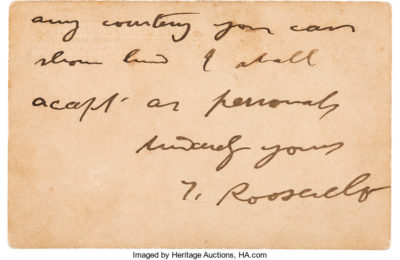 any courtesy you can
show him I shall
accept as personal
Sincerely yours
T. Roosevelt
Imaged by Heritage Auctions, HA.com